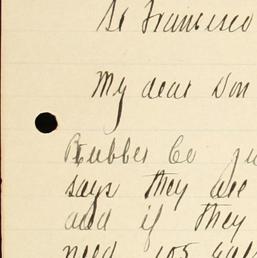 Sn Francisco
My dear Don
Rubber Co
says they are
and if they
need 105 gals